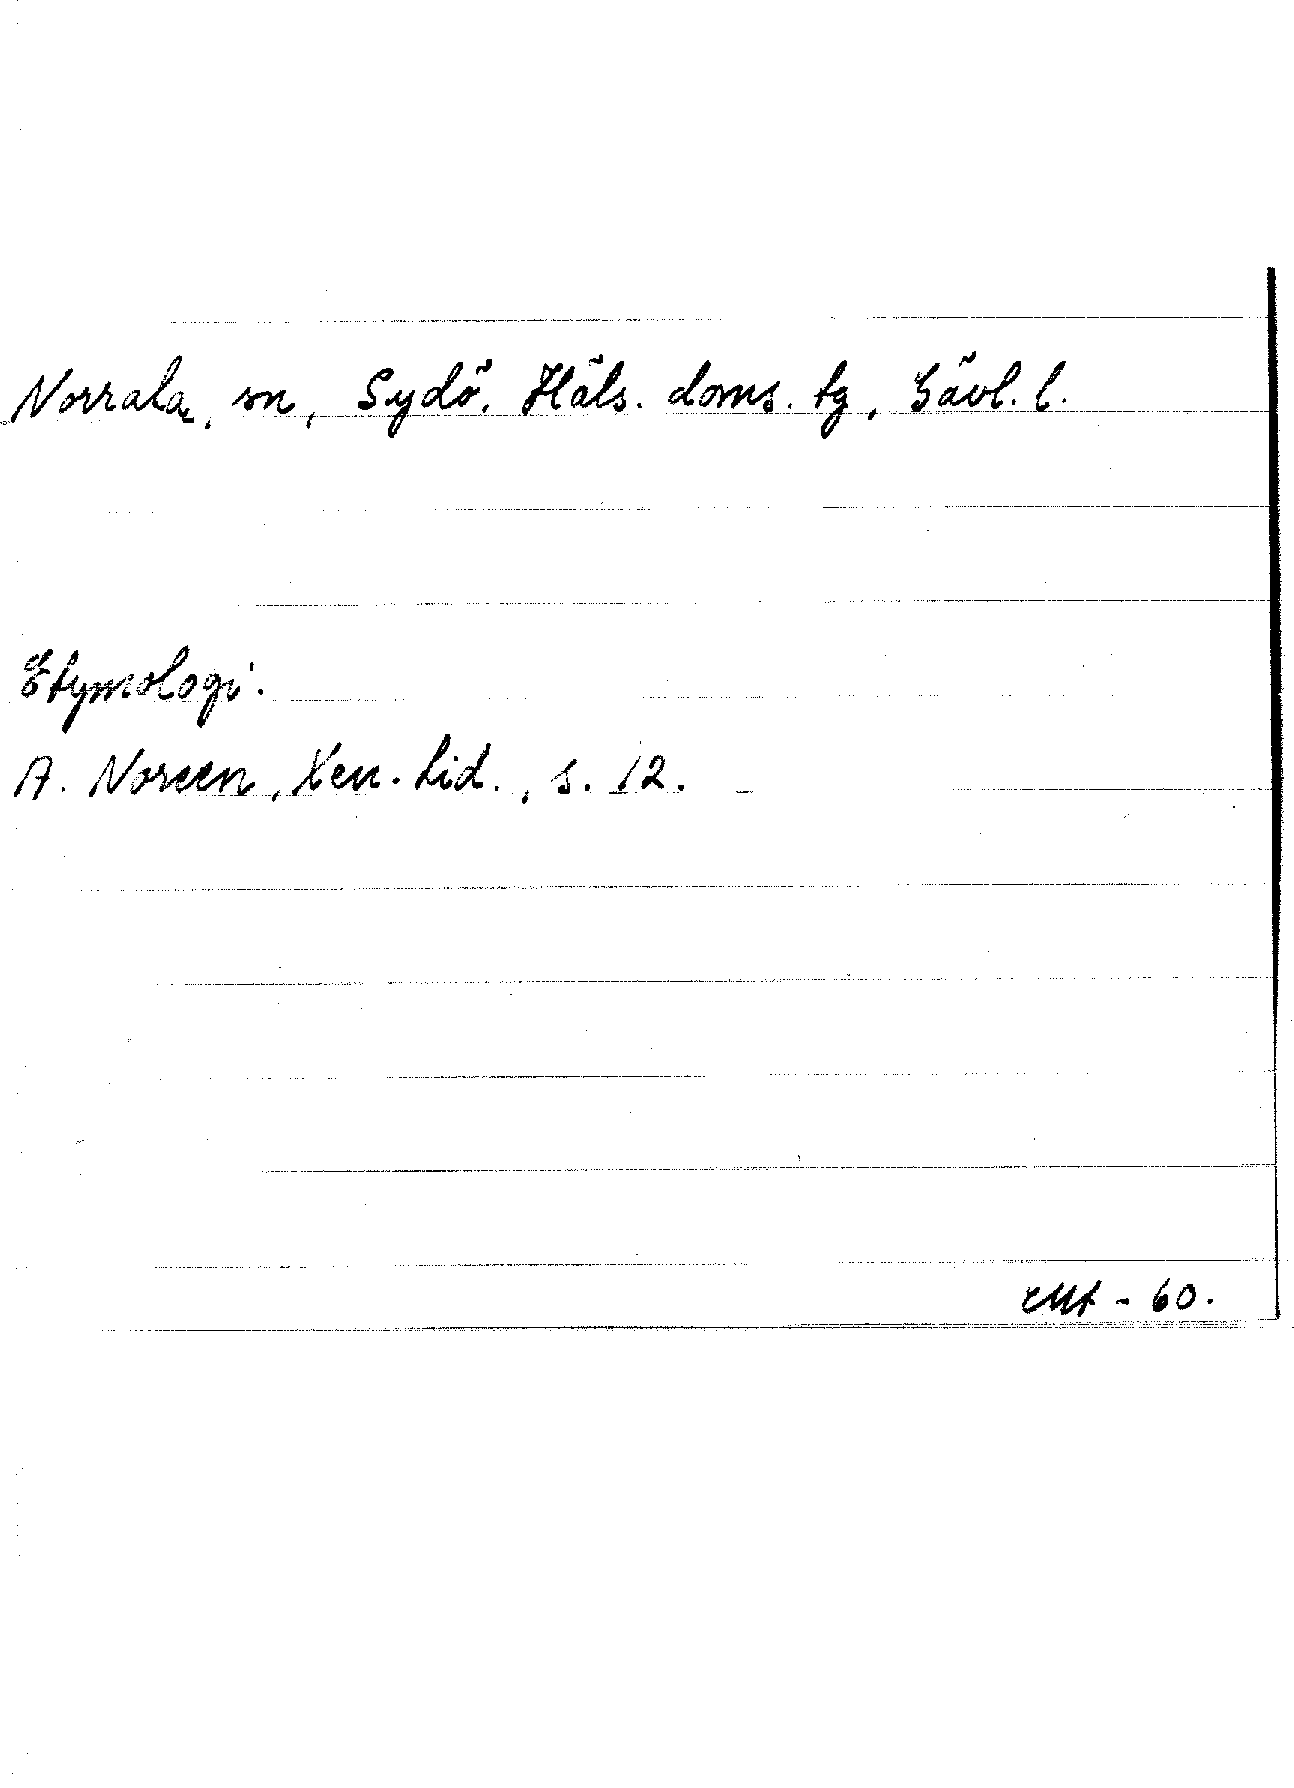 Norrala, sn, Sydö. Häls. doms. tg, Gävl. l.
Etymologi.
A. Noreen, Xen. Lid., s. 12.
- 60.